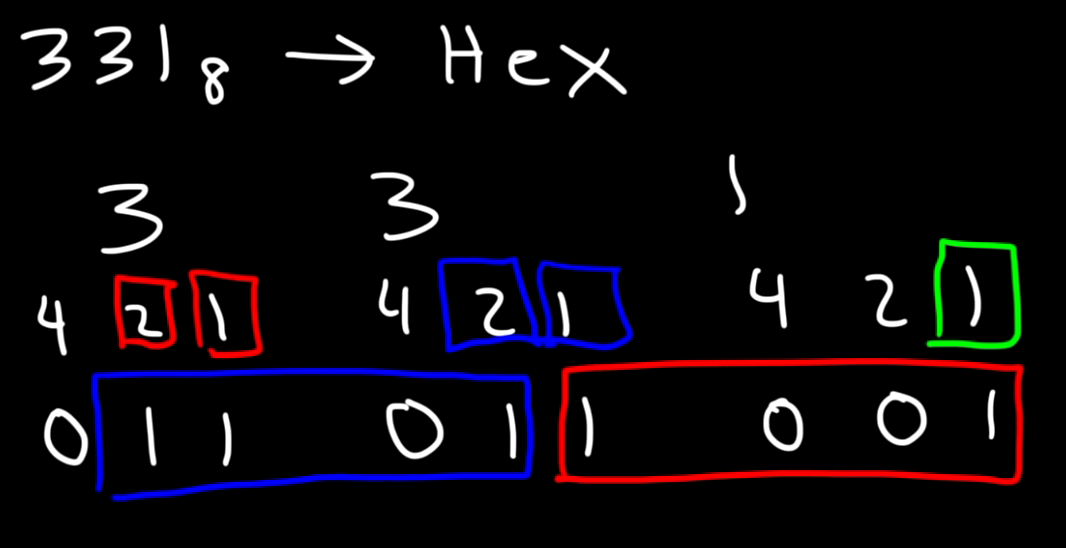 331₈ → Hex
3 3 1
4 2 1 4 2 1 4 2 1
0 1 1 0 1 1 0 0 1